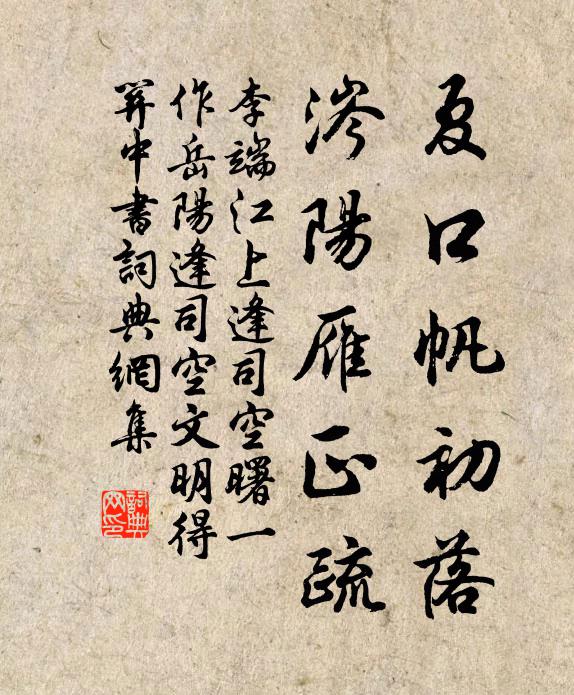 夏口帆初落
涔陽雁正疏
李端江上逢司空曙一
作岳陽逢司空文明得
關中書詞典網集
詞典
网印